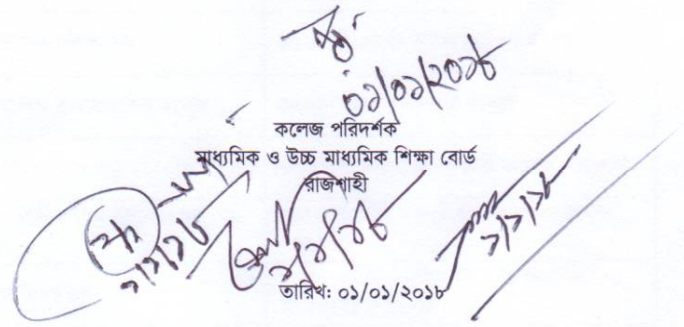 ০১/০১/২০১৮
কলেজ পরিদর্শক
মাধ্যমিক ও উচ্চ মাধ্যমিক শিক্ষা বোর্ড
রাজশাহী
১/১/১৮
১/১/১৮
১/১/১৮
তারিখ: ০১/০১/২০১৮